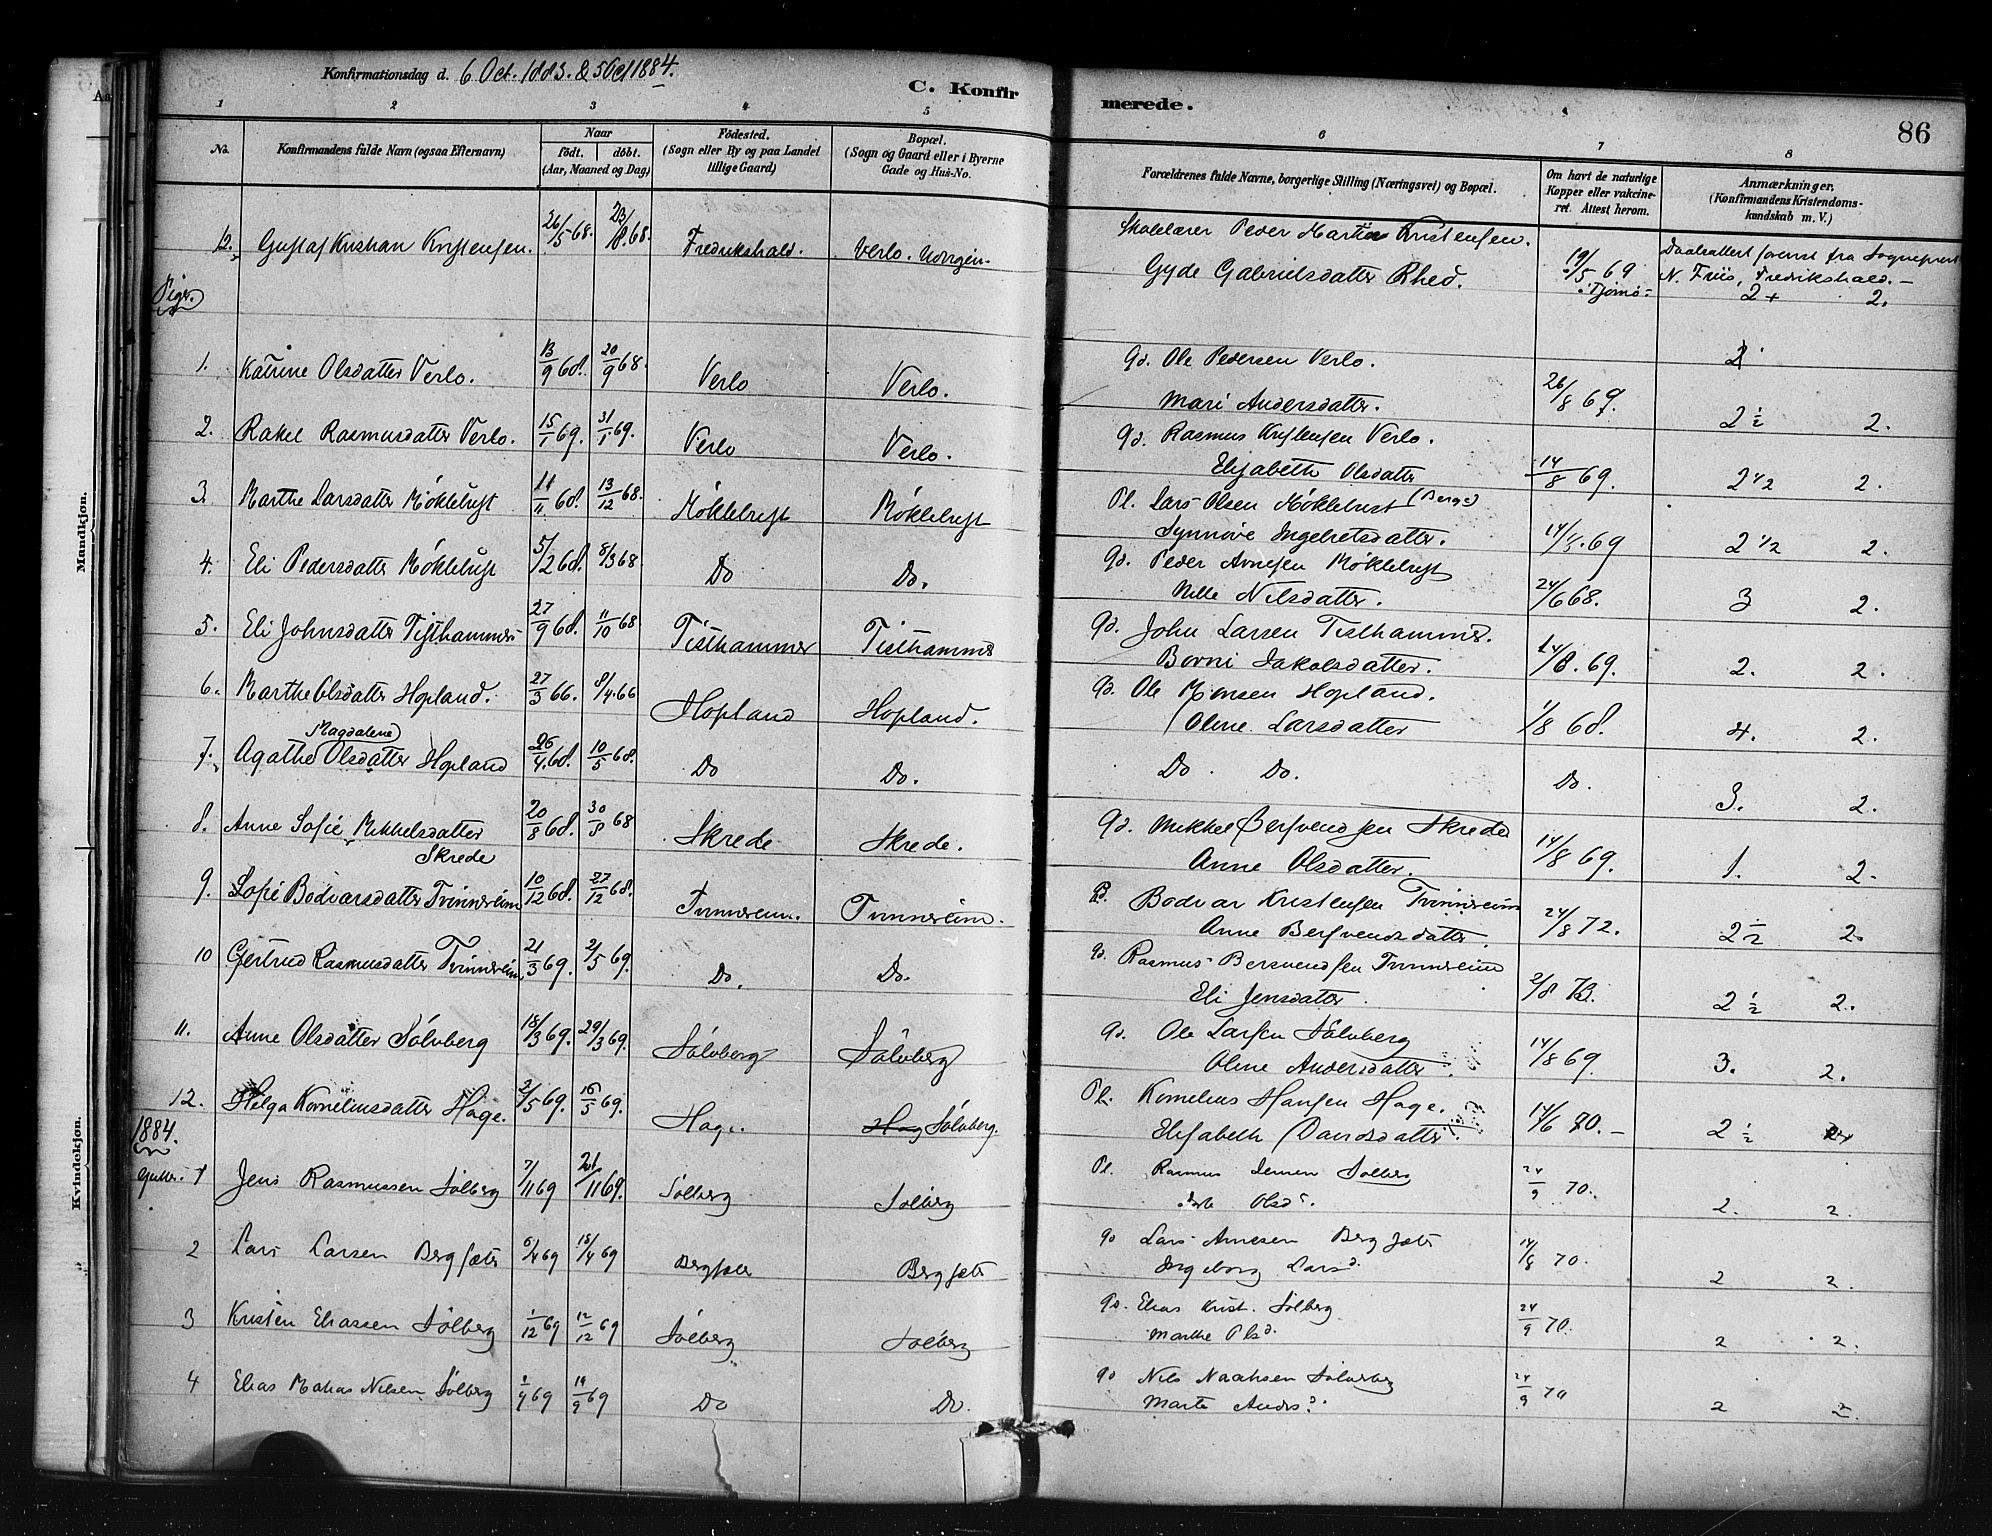 Konfirmationsdag d. 6 Oct. 1883. & 5 Oct 1884.
C. Konfirmerede.
86
1 2 3 4 5 6 7 8
No. Konfirmandens fulde Navn (ogsaa Efternavn) Naar födt. döbt. (Aar, Maaned og Dag) Födested. (Sogn eller By og paa Landet tillige Gaard) Bopæl. (Sogn og Gaard eller i Byerne Gade og Hus-No. Forældrenes fulde Navne, borgerlige Stilling (Næringsvei) og Bopæl. Om havt de naturlige Kopper eller vakcineret. Attest herom. Anmærkninger. (Konfirmandens Kristendomskundskab m. V.)
12. Gustaf Kristian Kristensen. 26/5 68. 23/8. 68. Fredrikshald. Verlo. Skolelærer Peder Martin Kristensen. 19/5 69
Gyde Gabrielsdatter Rhed. Tjømø N. Friis, Fredrikshald. 2+ 2.
Piger.
1. Katrine Olsdatter Verlo. 13/9 68. 20/9 68. Verlo Verlo. gd. Ole Pedersen Verlo. 2
Mari Andersdatter. 26/8 69.
2. Rakel Rasmusdatter Verlo. 15/1 69. 31/1 69. Verlo Verlo. gd. Rasmus Kristensen Verlo. 2 1/2 2.
Elisabeth Olsdatter 14/8 69. 2 1/2 2.
3. Marthe Larsdatter Møklebust 11/11 68. 13/12 68. Møklebust Møklebust Pl. Lars Olsen Møklebust (Berge)
Synnøve Ingebretsdatter. 14/8. 69 2 1/2 2.
4. Eli Pedersdatter Møklebust 5/2 68. 8/3 68 Do Do. gd. Peder Arnesen Møklebust
Nille Nilsdatter. 24/6 68. 3 2.
5. Eli Johnsdatter Tisthammer 27/9 68. 11/10 68 Tisthammer Tisthammer gd. John Larsen Tisthammer.
Borni Jakobsdatter. 14/8. 69. 2. 2.
6. Marthe Olsdatter Hopland. 27/3 66. 8/4. 66 Hopland Hopland. gd. Ole Monsen Hopland.
Oline Larsdatter 1/8 68. 4. 2.
Magdalene
7. Agathe Olsdatter Hopland 26/4. 68. 10/5 68. Do Do. Do. Do. Do. 3. 2.
8. Anne Sofie Mikkelsdatter 20/8 68. 30/8 68 Skrede Skrede. gd. Mikkel Bersvendsen Skrede
Skrede Anne Olsdatter. 14/8 69. 1. 2.
9. Sofie Bodvarsdatter Tvinnereim 10/12 68. 27/12 68. Tvinnereim. Tvinnereim. gd. Bodvar Kristensen Tvinnereim
Anne Bersvendsdatter. 24/8 72. 2 1/2 2.
10 Gjertrud Rasmusdatter Tvinnereim 21/3 69. 2/5 69. Do. Do. gd. Rasmus Bersvendsen Tvinnereim
Eli Jensdatter. 2/8 73. 2 1/2 2.
11. Anne Olsdatter Sølvberg 18/3 69. 29/3 69. Sølvberg Sølvberg gd. Ole Larsen Sølvberg
Oline Andersdatter. 14/8 69. 3. 2.
12. Helga Korneliusdatter Hage. 2/5 69. 16/5 69. Hage. Hag Sølvberg. Pl. Kornelius Hansen Hage.
Elisabeth Davidsdatter. 14/6 70. 2 1/2
1884.
Gutter. 1 Jens Rasmussen Sølberg 7/11 69 21/11 69. Sølberg Sølberg Pl. Rasmus Jensen Sølberg 24/9 70.
Olsd. 2. 2.
2 Lars Larsen Bergsæter 6/4 69 18/4 69 Bergsæter Bergsæter gd Lars Arnesen Bergsæter 14/8 70.
Ingeborg Larsd. 2 2.
3 Kristen Eliassen Sølberg 1/12 69 12/12 69 Sølberg Sølberg gd. Elias Krist. Sølberg 24/9 70.
Marthe Olsd. 2 2.
4 Elias Matias Nilsen Sølberg 2/9 69 19/9 69 Do Do. gd Nils Sølvberg 24/9 70
Marte Andersd. 2 2.
Mandkjøn.
Kvindekjøn.